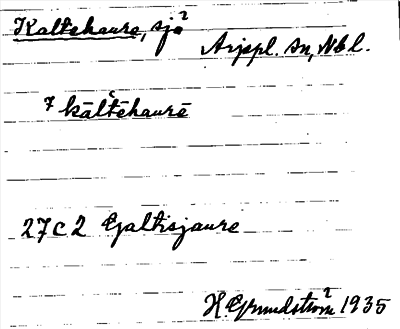 Kaltehaure, sjö
Arjepl. sn, Nbl.
kāltēhaurē
27 C 2 Galtisjaure
H. Grundström 1935